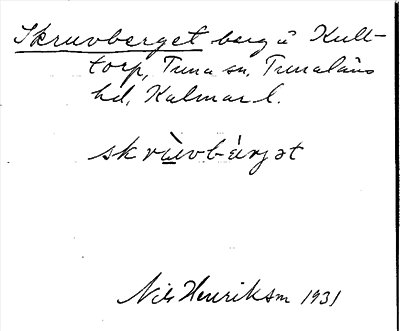 Skruvberget berg å Kult-
torp, Tuna sn, Tunaläns
hd, Kalmar l.
skrùvbárjət
Nils Henriksm 1931